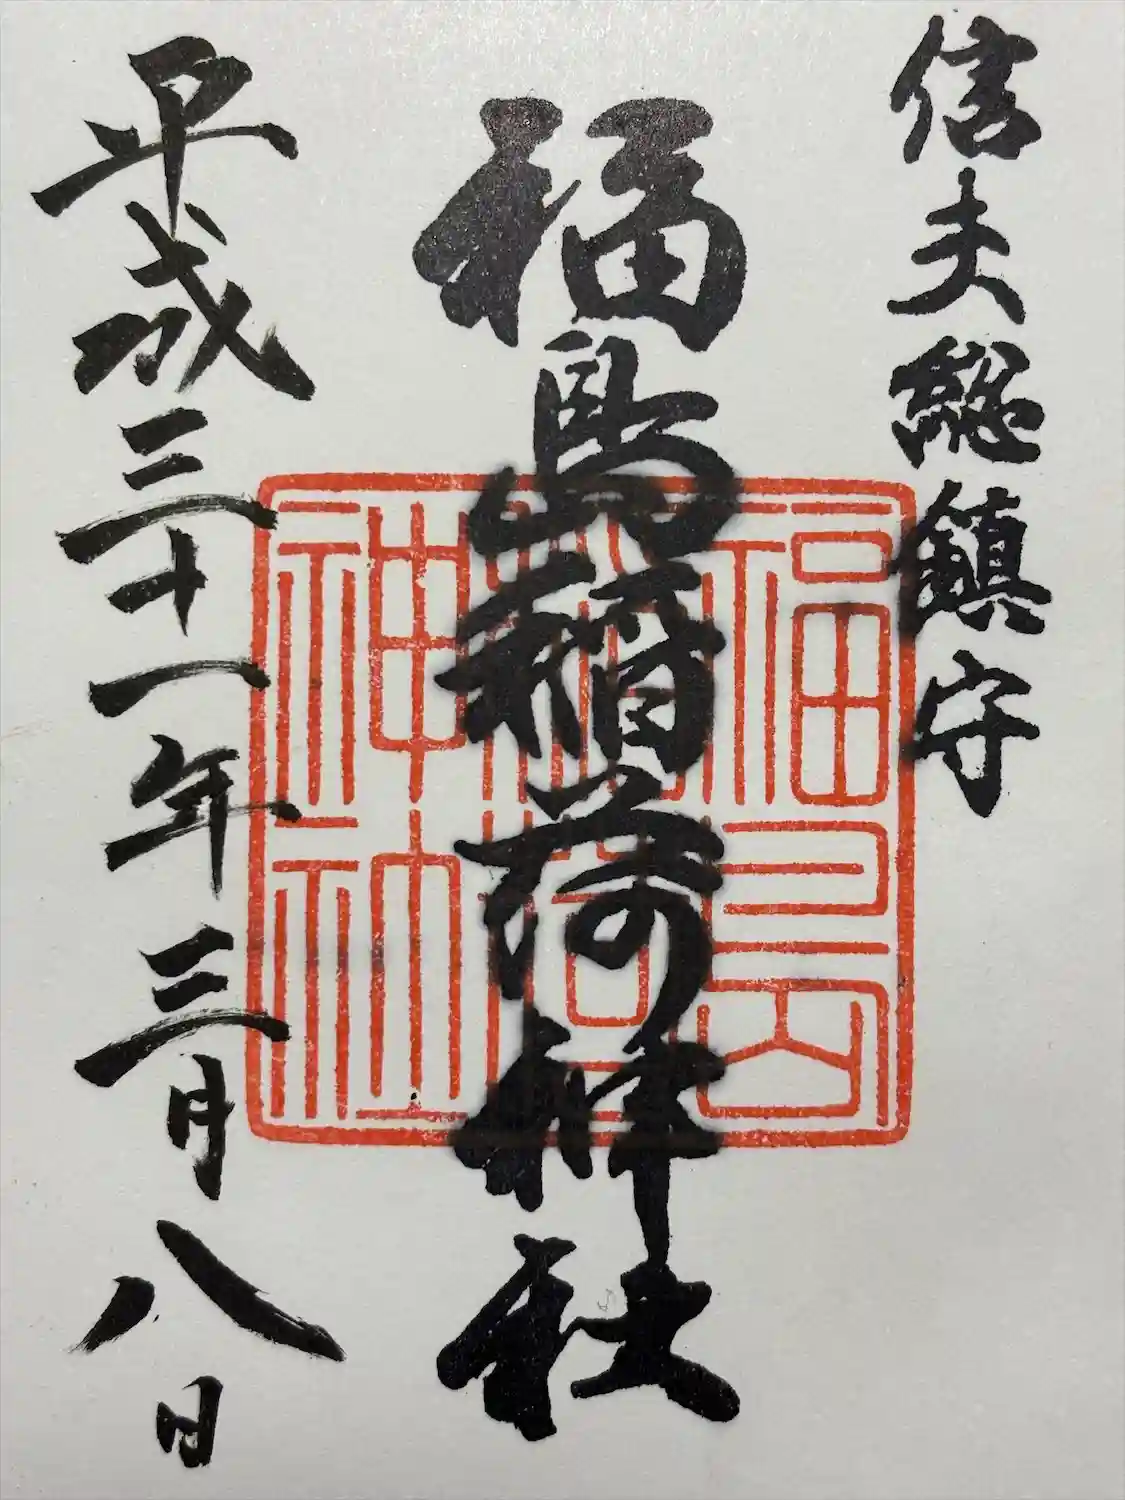 信夫総鎮守
福島稲荷神社
福島稲荷神社
平成三十一年三月八日